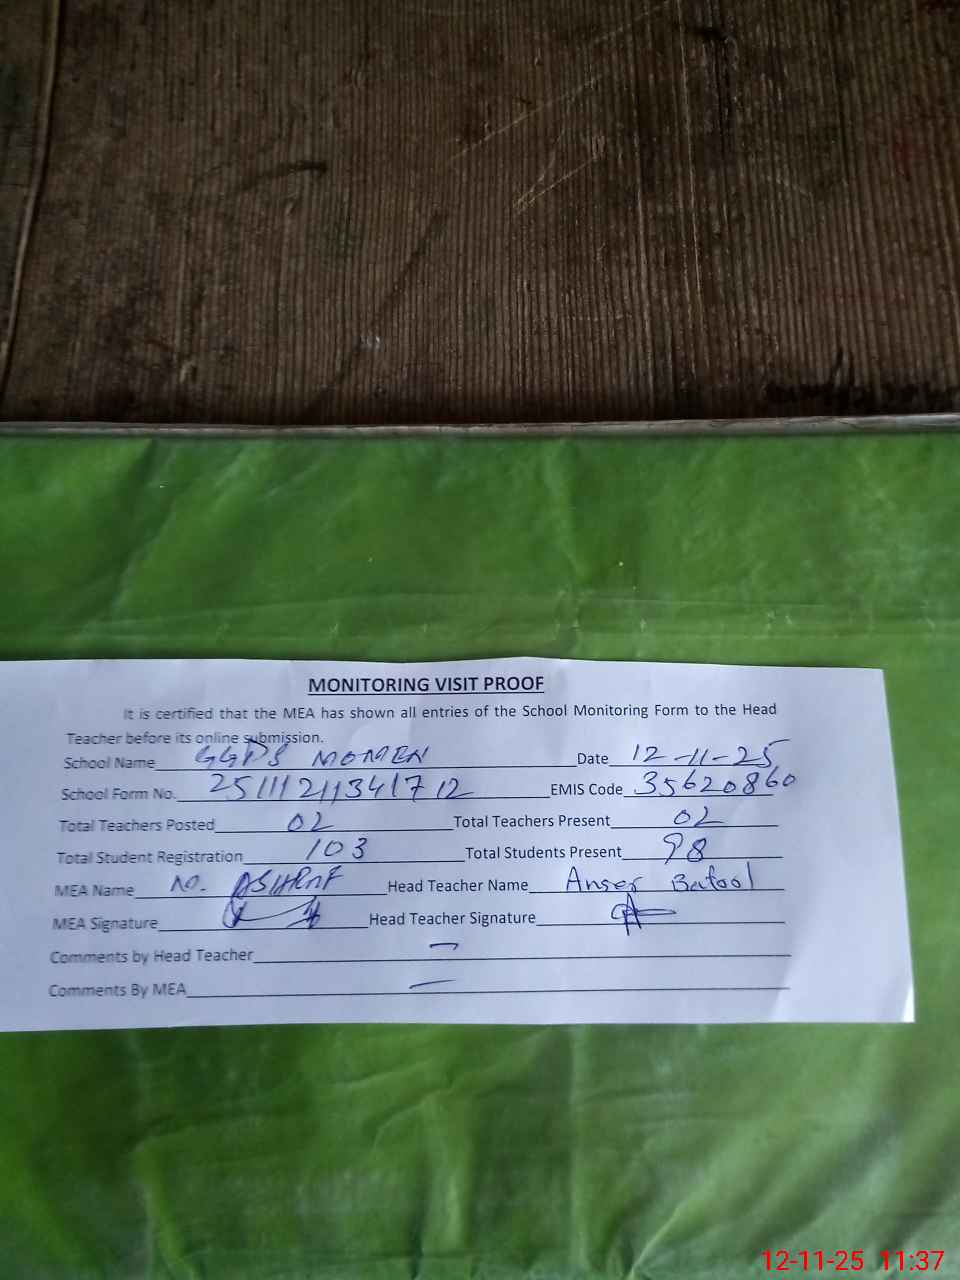 MONITORING VISIT PROOF
It is certified that the MEA has shown all entries of the School Monitoring Form to the Head
Teacher before its online submission.
School Name GGPS MOMEN Date 12-11-25
School Form No. 251112113417 12 EMIS Code 35620860
Total Teachers Posted 02 Total Teachers Present 02
Total Student Registration 103 Total Students Present 98
MEA Name M. ASHRAF Head Teacher Name Anser Batool
MEA Signature Head Teacher Signature
Comments by Head Teacher —
Comments By MEA —
12-11-25 11:37